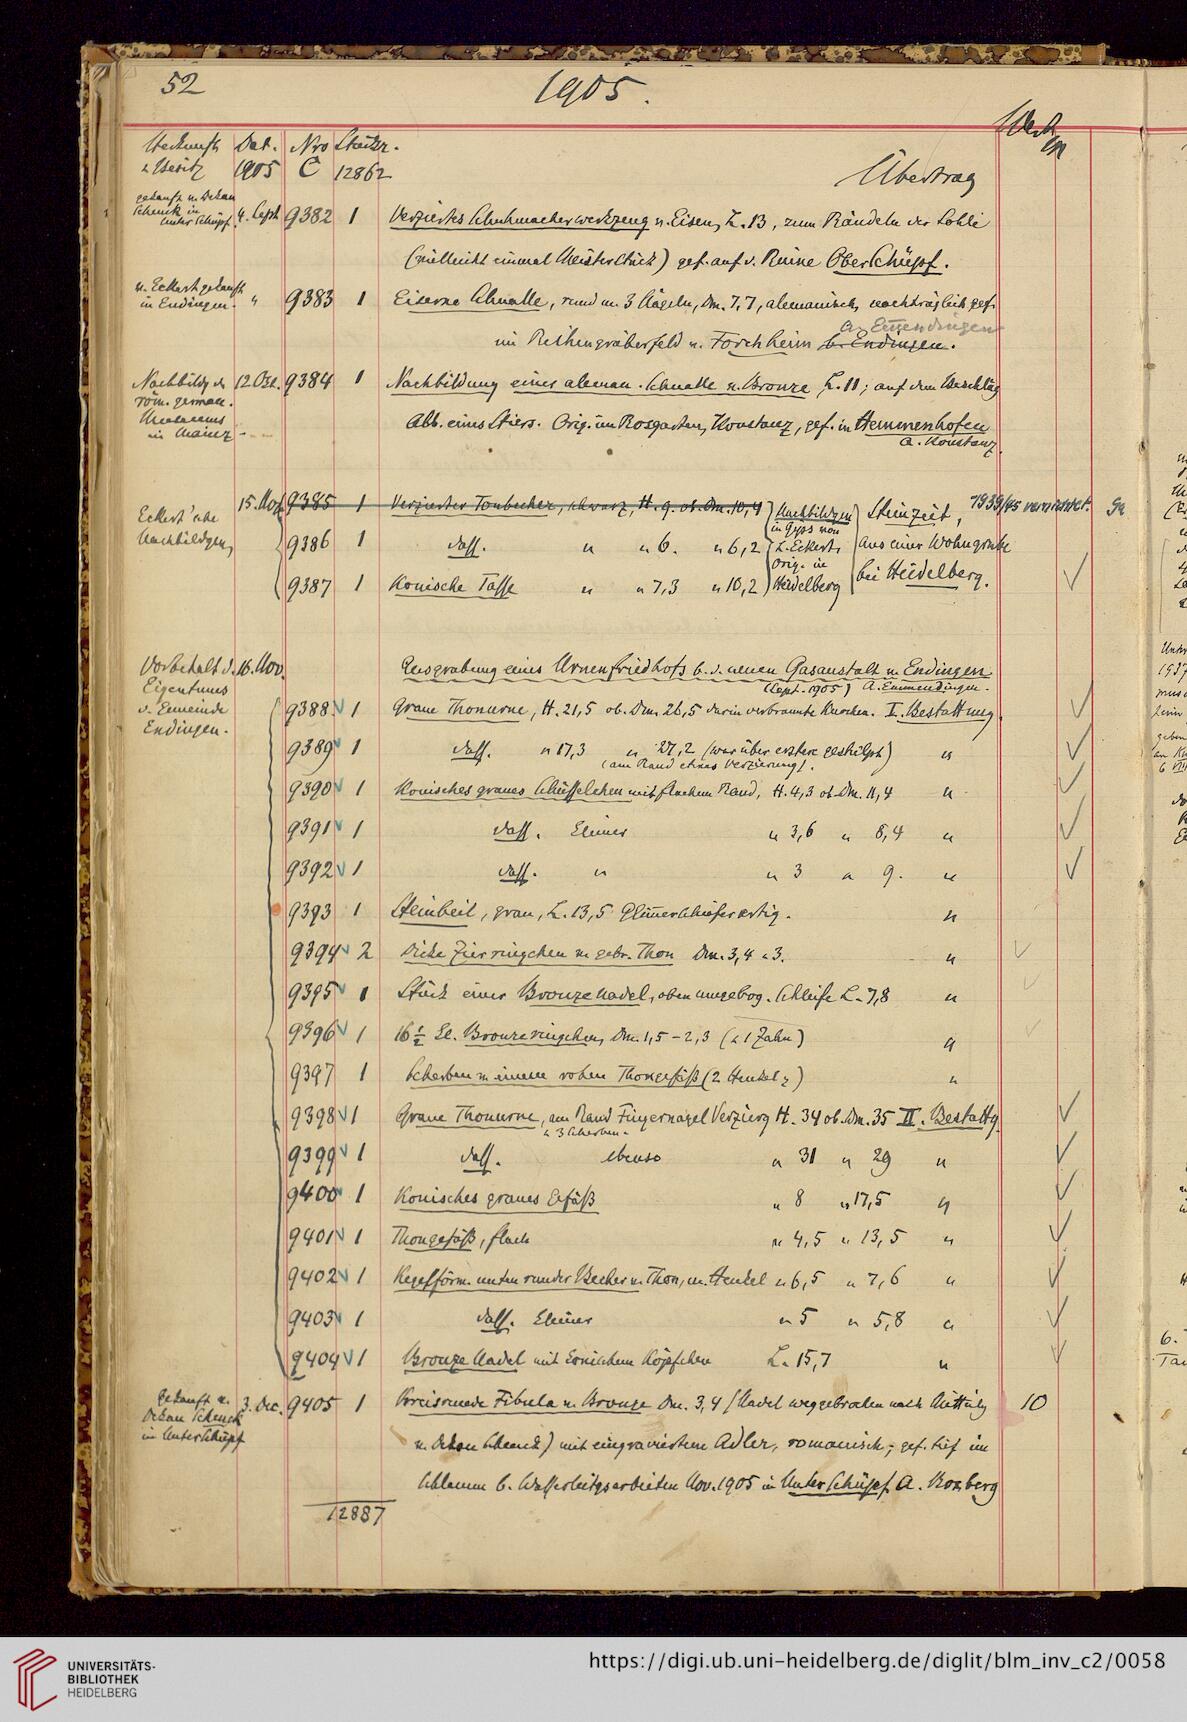 52 1905.
Herkunft Dat. Nro Stückz. Wert
u. Besitz 1905 C 12862 Übertrag M
gekauft v. Dekan
Schenck in
Unterschüpf. 4. Sept. 9382 1 Verziertes Schuhmacherwerkzeug v. Eisen, L. 13, zum Rändeln der Sohle
(vielleicht einmal Meisterstück) gef. auf d. Ruine Oberschüpf.
v. Eckert gekauft
in Endingen. " 9383 1 Eiserne Schnalle, rund m. 3 Nägeln, Dm. 7,7, alemanisch, nachträglich gef.
A. Emmendingen
im Reihengräberfeld v. Forchheim b. Endingen.
Nachbildg des 12 Okt. 9384 1 Nachbildung einer aleman. Schnalle v. Bronze, L. 11; auf dem Beschläg
röm. german.
Museums
in Mainz - Abb. eines Stiers. Orig. im Rosgarten, Konstanz, gef. in Hemmenhofen
A. Konstanz.
15. Nov. 9385 1 Verzierter Tonbecher, schwarz, H. 9. ob. Dm. 10,4 Nachbildgen Steinzeit, 1939/45 vernichtet.
Eckert'sche
Nachbildgen, in Gyps von
9386 1 dass. " " 6. " 6,2 L. Eckert, aus einer Wohngrube
Orig. in
9387 1 Konische Tasse " " 7,3 " 10,2 Heidelberg bei Heidelberg.
Vorbehalt d. 16. Nov. Ausgrabung eines Urnenfriedhofs b. d. neuen Gasanstalt v. Endingen
Eigentums (Sept. 1905) A. Emmendingen.
d. Gemeinde
Endingen.
9388 1 Graue Thonurne, H. 21,5 ob. Dm. 26,5 darin verbrannte Knochen. I. Bestattung.
9389 1 dass. " 17,3 " 27,2 (war über erstere gestülpt) "
(am Rand etwas Verzierung).
9390 1 Konisches graues Schüsselchen mit flachem Rand, H. 4,3 ob. Dm. 11,4 "
9391 1 dass. kleiner " 3,6 " 8,4 "
9392 1 dass. " " 3 " 9. "
9393 1 Steinbeil, grau, L. 13,5 Glimmerschieferartig. "
9394 2 Dicke Zierringchen v. gebr. Thon Dm. 3,4 u 3. "
9395 1 Stück einer Bronzenadel, oben umgebog. Schleife L. 7,8 "
9396 1 16 ½ kl. Bronzeringchen, Dm. 1,5 - 2,3 (u 1 Zahn) "
9397 1 Scherben v. einem rohen Thongefäß (2 Henkel) "
9398 1 Graue Thonurne, am Rand Fingernagel Verzierg H. 34 ob. Dm. 35 II. Bestattg.
u 3 Scherben.
9399 1 dass. ebenso " 31 " 29 "
9400 1 Konisches graues Gefäß " 8 " 17,5 "
9401 1 Thongefäß, flach " 4,5 " 13,5 "
9402 1 Kegelförm. unten runder Becher v. Thon, m. Henkel " 6,5 " 7,6 "
9403 1 dass. kleiner " 5 " 5,8 "
9404 1 Bronze Nadel mit konischem Köpfchen L. 15,7 "
gekauft v.
Dekan Schenck
in Unterschüpf 3. Dec. 9405 1 Kreisrunde Fibula v. Bronze Dm. 3,4 (Nadel weggebrochen nach Mitthlg 10
v. Dekan Schenck) mit eingraviertem Adler, romanisch; gef. tief im
Schlamm b. Wasserleitgsarbeiten Nov. 1905 in Unterschüpf A. Boxberg
12887
UNIVERSITÄTS-
BIBLIOTHEK
HEIDELBERG
https://digi.ub.uni-heidelberg.de/diglit/blm_inv_c2/0058